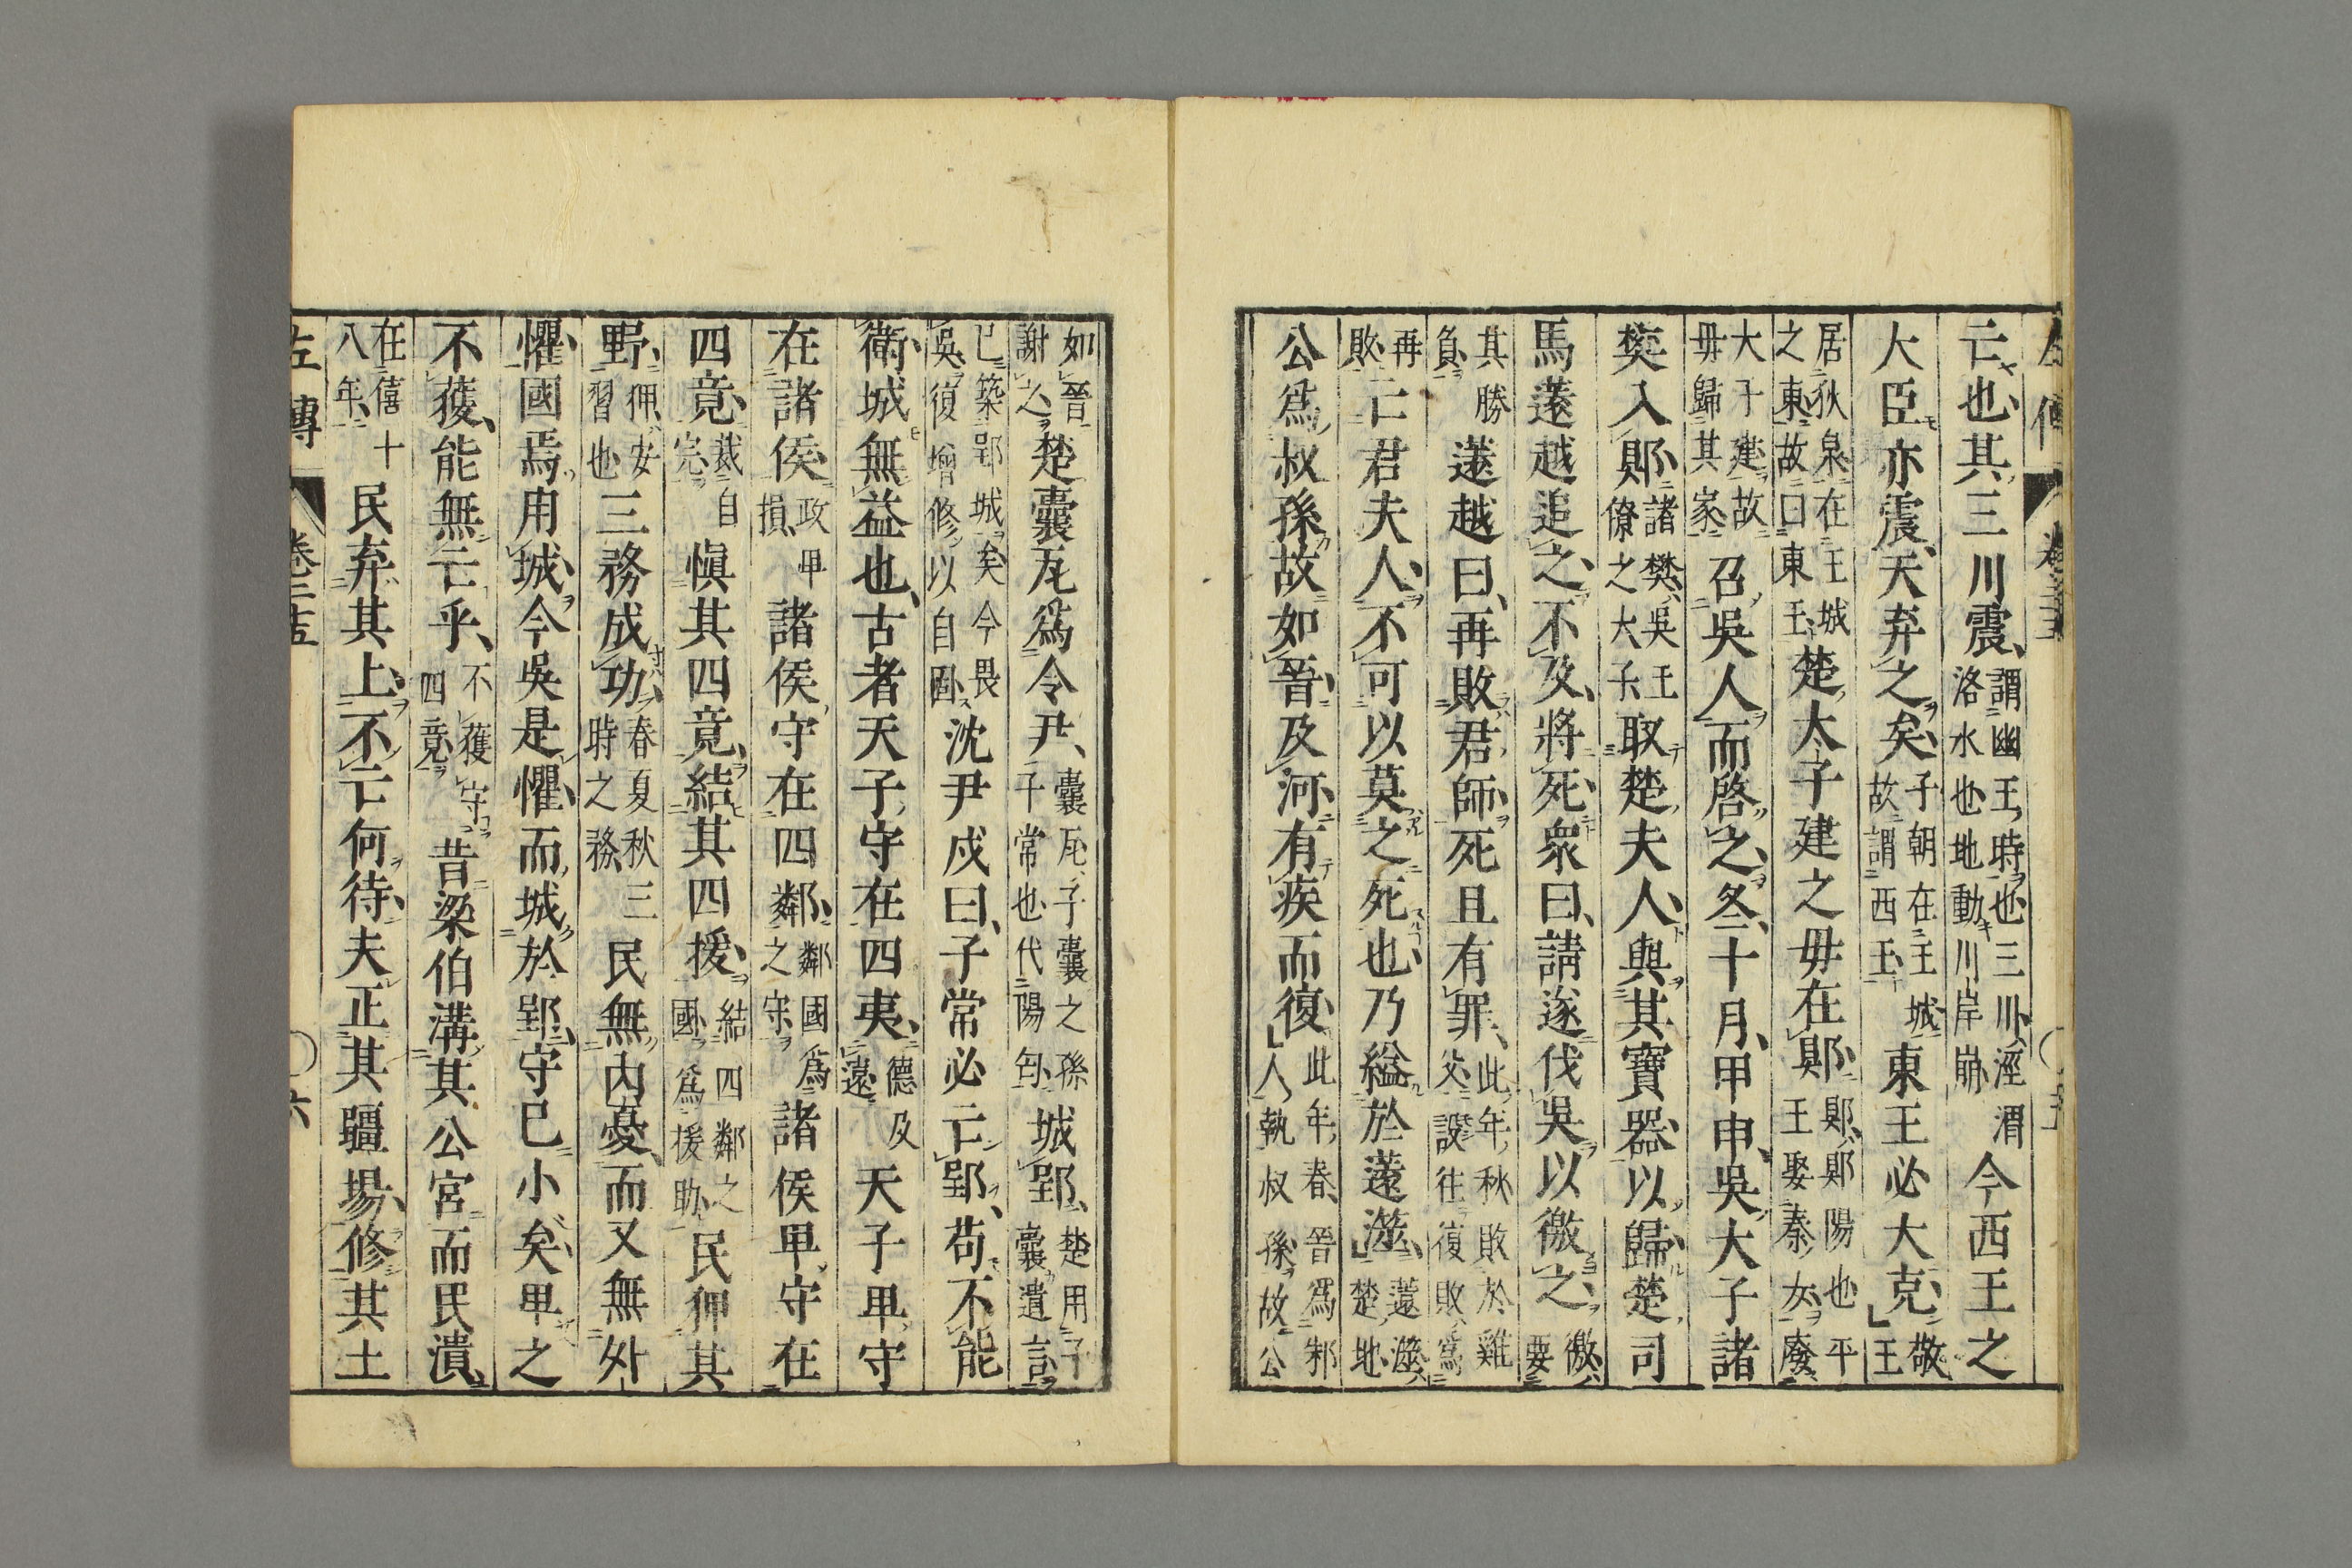 亡也其三川震謂幽王時也三川涇渭洛水也地動川岸崩今西王之
大臣亦震天弃之矣子朝在王城故謂西王東王必大克敬王
居狄泉在王城之東故曰東王楚大子建之母在郹郹郹陽也平王娶秦女廢
大子建故母歸其家召吳人而啓之冬十月甲申吳大子諸
樊入郹諸樊吳王僚之大子取楚夫人與其寶器以歸楚司
馬薳越追之不及將死衆曰請遂伐吳以徼之徼要
其勝負薳越曰再敗君師死且有罪此年秋敗於雞父設往復敗爲
再敗亡君夫人不可以莫之死也乃縊於薳澨薳澨楚地
公爲叔孫故如晉及河有疾而復此年春晉爲邾人執叔孫故公
如晉謝之楚囊瓦爲令尹囊瓦子囊之孫子常也代陽匄城郢楚用子囊遺言
已築郢城矣今畏吳復增修以自固沈尹戌曰子常必亡郢苟不能
衛城無益也古者天子守在四夷德及遠天子卑守
在諸侯政卑損諸侯守在四鄰鄰國爲之守諸侯卑守在
四竟裁自完愼其四竟結其四援結四鄰之國爲援助民狎其
野狎安習也三務成功春夏秋三時之務民無内憂而又無外
懼國焉用城今吳是懼而城於郢守已小矣卑之
不獲能無亡乎不獲守四竟昔梁伯溝其公宮而民潰
在僖十八年民弃其上不亡何待夫正其疆場修其土
左傳 卷二十五 六